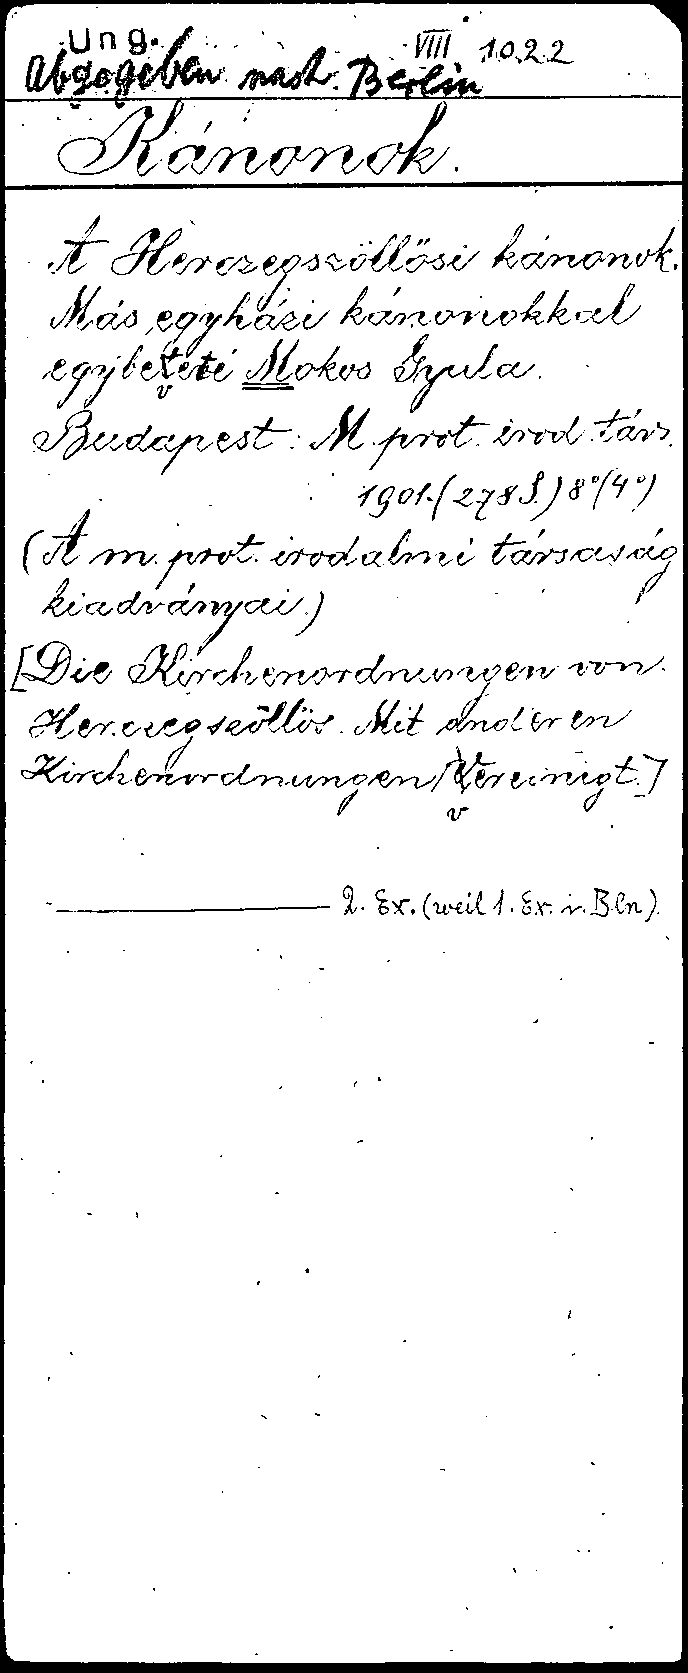 Ung. VIII 1022
Abgegeben nach Berlin
Kánonok.
A Herczegszöllösi kánonok.
Más egyházi kánonokkal
egybeveté Mokos Gyula.
Budapest: M. prot. irod. társ.
1901. (278 S.) 8° (4°)
(A m. prot. irodalmi társaság
kiadványai.)
[Die Kirchenordnungen von
Herczegszöllös. Mit anderen
Kirchenordnungen vereinigt.]
2. Ex. (weil 1. Ex. i. Bln).